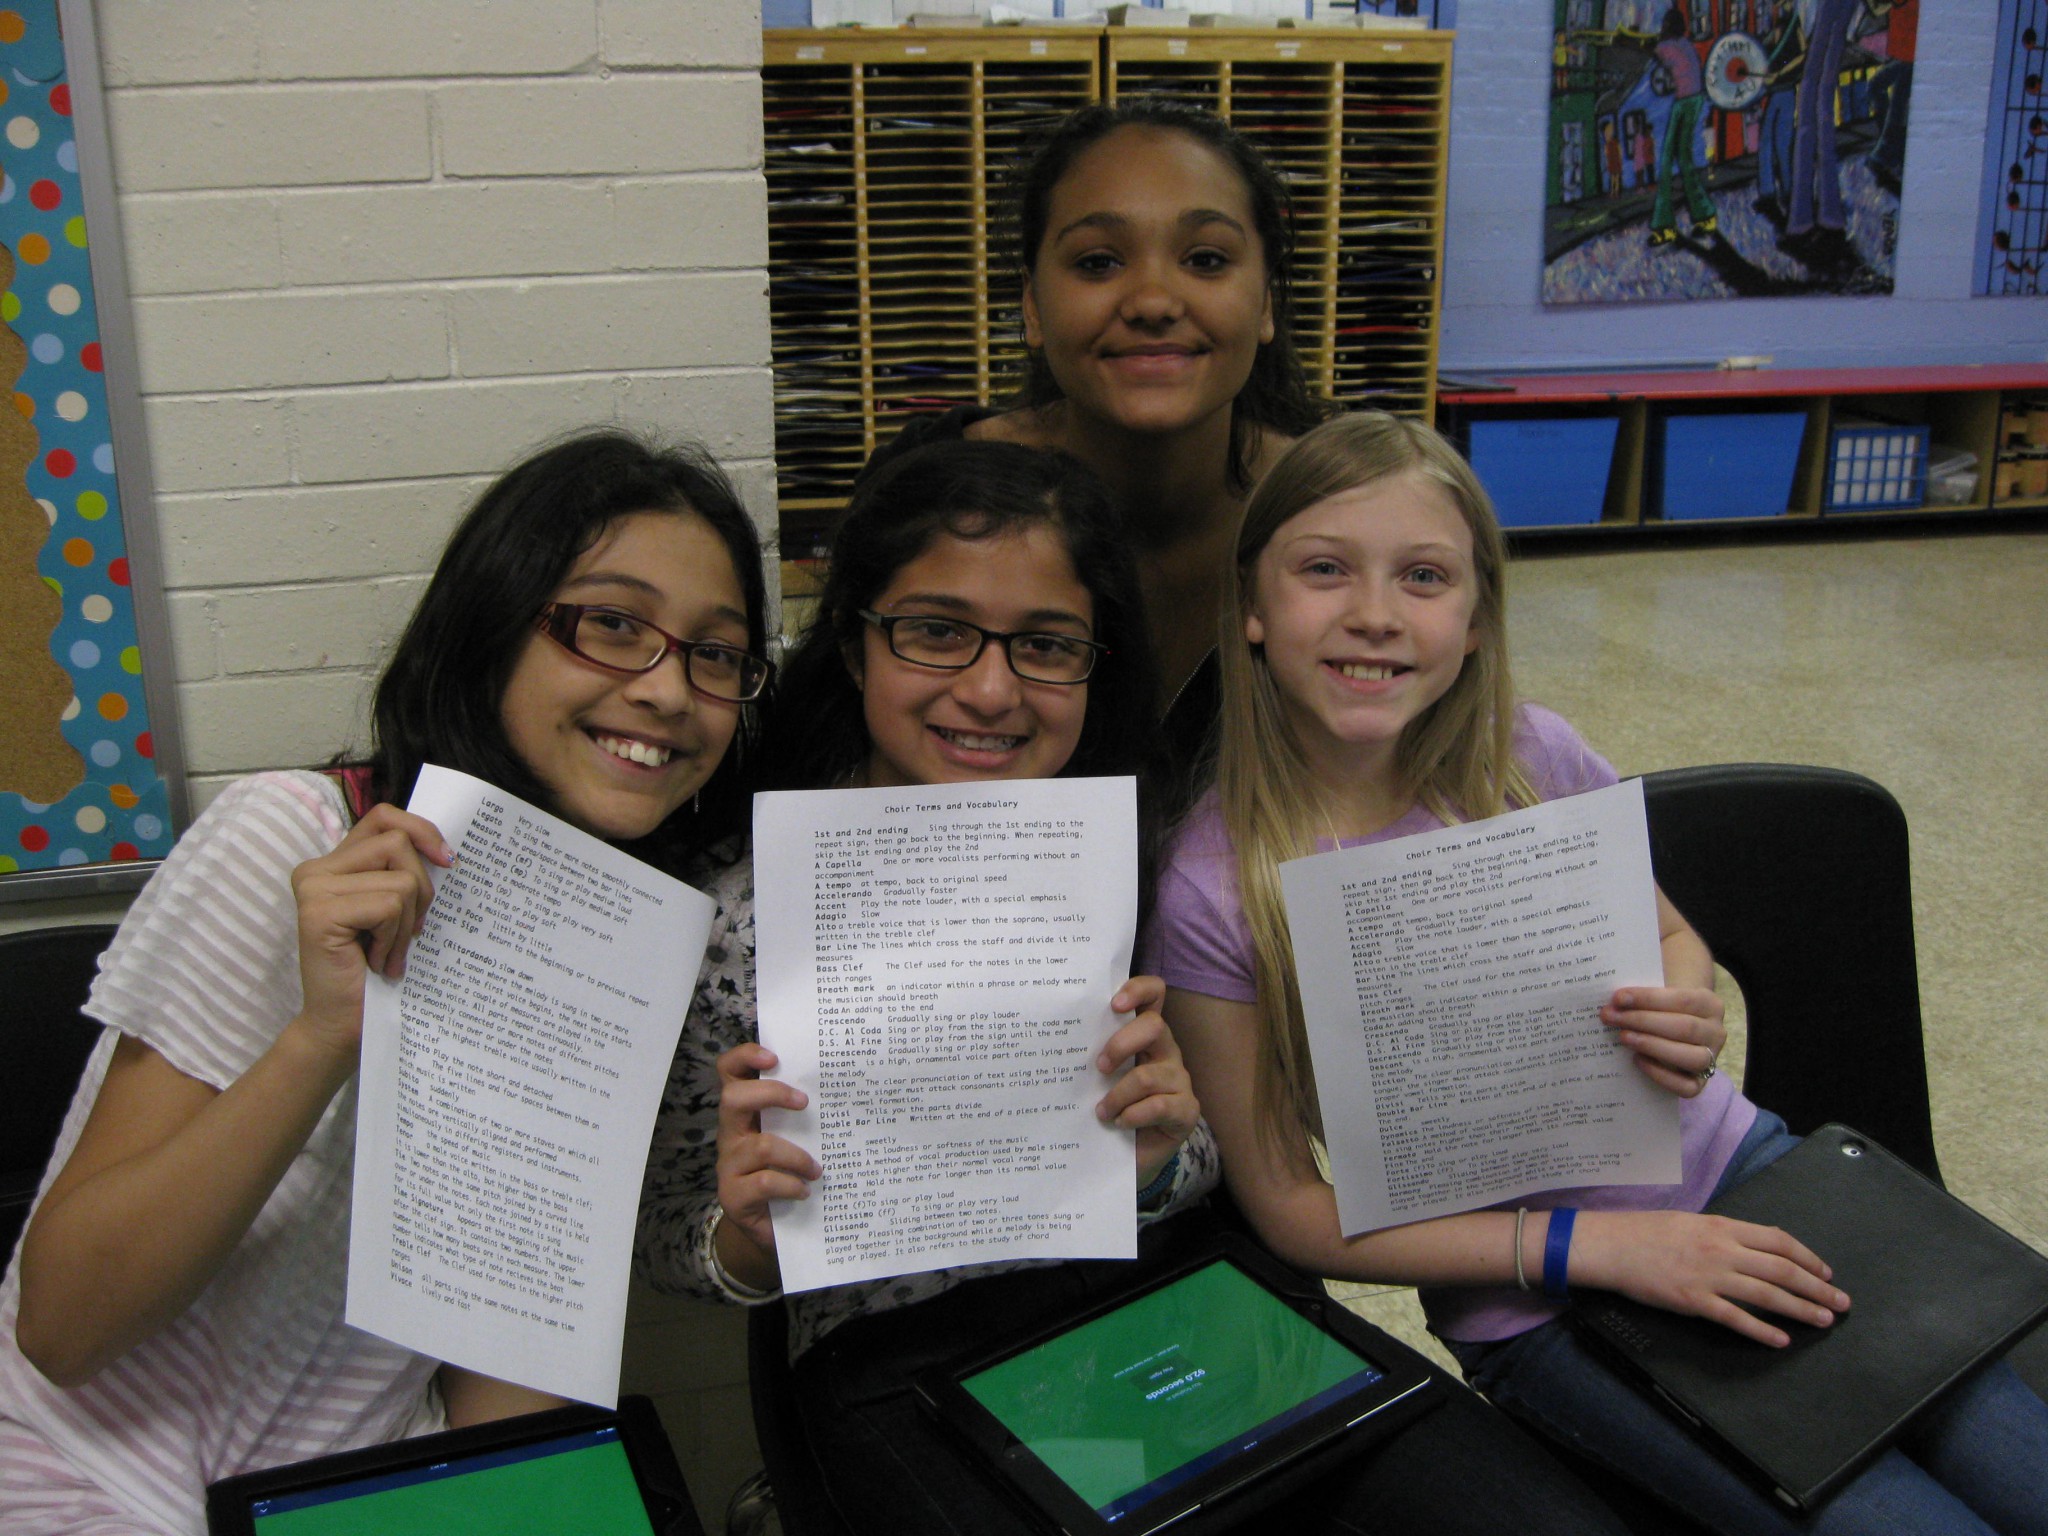 Largo Very slow
Legato To sing two or more notes smoothly connected
Measure The area/space between two bar lines
Mezzo Forte (mf) To sing or play medium loud
Mezzo Piano (mp) To sing or play medium soft
Moderato In a moderate tempo
ianissimo (pp) To sing or play very soft
Piano (p)To sing or play soft
Pitch A musical sound
Poco a Poco little by little
Repeat Sign Return to the beginning or to previous repeat
sign
Rit. (Ritardando) slow down
Round A canon where the melody is sung in two or more
voices. After the first voice begins, the next voice starts
singing after a couple of measures are played in the
preceding voice. All parts repeat continuously.
Slur Smoothly connected or more notes of different pitches
by a curved line over or under the notes
Soprano The highest treble voice usually written in the
treble clef
Staccato Play the note short and detached
Staff The five lines and four spaces between them on
which music is written
Subito suddenly
System A combination of two or more staves on which all
the notes are vertically aligned and performed
simultaneously in differing registers and instruments.
Tempo the speed of music
Tenor a male voice written in the bass or treble clef;
it is lower than the alto, but higher than the bass
Tie Two notes on the same pitch joined by a curved line
over or under the notes. Each note joined by a tie is held
for its full value but only the first note is sung
Time Signature Appears at the beggining of the music
after the clef sign. It contains two numbers. The upper
number tells how many beats are in each measure. The lower
number indicates what type of note recieves the beat
Treble Clef The Clef used for notes in the higher pitch
ranges
Unison all parts sing the same notes at the same time
Vivace lively and fast
Choir Terms and Vocabulary
1st and 2nd ending Sing through the 1st ending to the
repeat sign, then go back to the beginning. When repeating,
skip the 1st ending and play the 2nd
A Capella One or more vocalists performing without an
accompaniment
A tempo at tempo, back to original speed
Accelerando Gradually faster
Accent Play the note louder, with a special emphasis
Adagio Slow
Alto a treble voice that is lower than the soprano, usually
written in the treble clef
Bar Line The lines which cross the staff and divide it into
measures
Bass Clef The Clef used for the notes in the lower
pitch ranges
Breath mark an indicator within a phrase or melody where
the musician should breath
Coda An adding to the end
Crescendo Gradually sing or play louder
D.C. Al Coda Sing or play from the sign to the coda mark
D.S. Al Fine Sing or play from the sign until the end
Decrescendo Gradually sing or play softer
Descant is a high, ornamental voice part often lying above
the melody
Diction The clear pronunciation of text using the lips and
tongue; the singer must attack consonants crisply and use
proper vowel formation.
Divisi Tells you the parts divide
Double Bar Line Written at the end of a piece of music.
The end.
Dulce sweetly
Dynamics The loudness or softness of the music
Falsetto A method of vocal production used by male singers
to sing notes higher than their normal vocal range
Fermata Hold the note for longer than its normal value
Fine The end
Forte (f)To sing or play loud
Fortissimo (ff) To sing or play very loud
Glissando Sliding between two notes.
Harmony Pleasing combination of two or three tones sung or
played together in the background while a melody is being
sung or played. It also refers to the study of chord
Choir Terms and Vocabulary
1st and 2nd ending Sing through the 1st ending to the
repeat sign, then go back to the beginning. When repeating,
skip the 1st ending and play the 2nd
A Capella One or more vocalists performing without an
accompaniment
A tempo at tempo, back to original speed
Accelerando Gradually faster
Accent Play the note louder, with a special emphasis
Adagio Slow
Alto a treble voice that is lower than the soprano, usually
written in the treble clef
Bar Line The lines which cross the staff and divide it into
measures
Bass Clef The Clef used for the notes in the lower
pitch ranges
Breath mark an indicator within a phrase or melody where
the musician should breath
Coda An adding to the end
Crescendo Gradually sing or play louder
D.C. Al Coda Sing or play from the sign to the coda
D.S. Al Fine Sing or play from the sign until the end
Decrescendo Gradually sing or play softer
Descant is a high, ornamental voice part often lying
the melody
Diction The clear pronunciation of text using the lips
tongue; the singer must attack consonants crisply and use
proper vowel formation.
Divisi Tells you the parts divide
Double Bar Line Written at the end of a piece of music.
The end
Dulce sweetly
Dynamics The loudness or softness of the music
Falsetto A method of vocal production used by male singers
to sing notes higher than their normal vocal range
Fermata Hold the note for longer than its normal value
Fine The end
Forte (f)To sing or play loud
Fortissimo (ff) To sing or play very loud
Glissando Sliding between two notes.
Harmony Pleasing combination of two or three tones sung or
played together in the background while a melody is being
sung or played. It also refers to the study of chord
92.0 seconds
Play Again